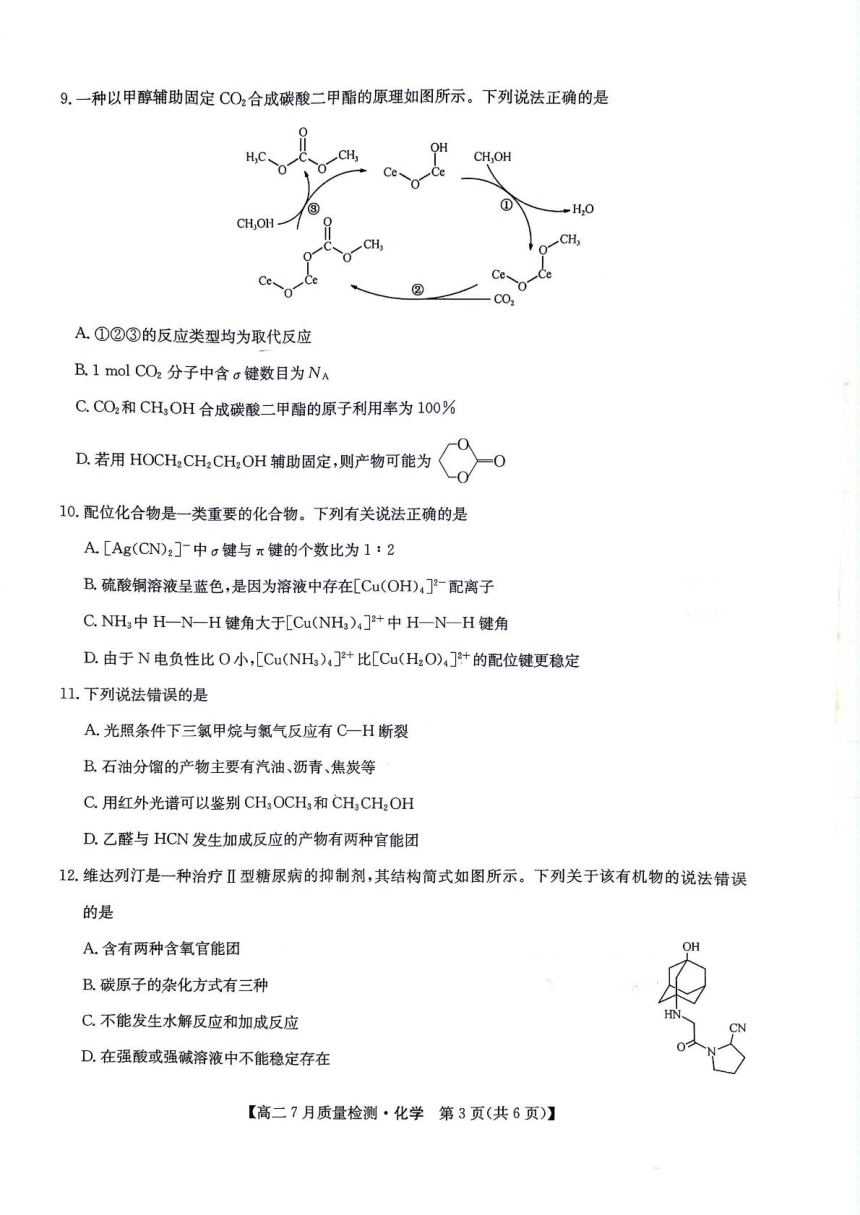 9. 一种以甲醇辅助固定 CO₂合成碳酸二甲酯的原理如图所示。下列说法正确的是
O
H₃C O C O CH₃
OH
Ce O Ce
CH₃OH
③
①
H₂O
CH₃OH
O
O C O CH₃
Ce O Ce
O CH₃
Ce O Ce
②
CO₂
A. ①②③的反应类型均为取代反应
B. 1 mol CO₂ 分子中含 σ 键数目为 N_A
C. CO₂和 CH₃OH 合成碳酸二甲酯的原子利用率为 100%
D. 若用 HOCH₂CH₂CH₂OH 辅助固定,则产物可能为 O O O
10. 配位化合物是一类重要的化合物。下列有关说法正确的是
A. [Ag(CN)₂]⁻中 σ 键与 π 键的个数比为 1∶2
B. 硫酸铜溶液呈蓝色,是因为溶液中存在[Cu(OH)₄]²⁻配离子
C. NH₃中 H—N—H 键角大于[Cu(NH₃)₄]²⁺中 H—N—H 键角
D. 由于 N 电负性比 O 小,[Cu(NH₃)₄]²⁺比[Cu(H₂O)₄]²⁺的配位键更稳定
11. 下列说法错误的是
A. 光照条件下三氯甲烷与氯气反应有 C—H 断裂
B. 石油分馏的产物主要有汽油、沥青、焦炭等
C. 用红外光谱可以鉴别 CH₃OCH₃和 CH₃CH₂OH
D. 乙醛与 HCN 发生加成反应的产物有两种官能团
12. 维达列汀是一种治疗Ⅱ型糖尿病的抑制剂,其结构简式如图所示。下列关于该有机物的说法错误
的是
A. 含有两种含氧官能团
B. 碳原子的杂化方式有三种
C. 不能发生水解反应和加成反应
D. 在强酸或强碱溶液中不能稳定存在
OH
HN
CN
O N
【高二7月质量检测·化学 第3页(共6页)】